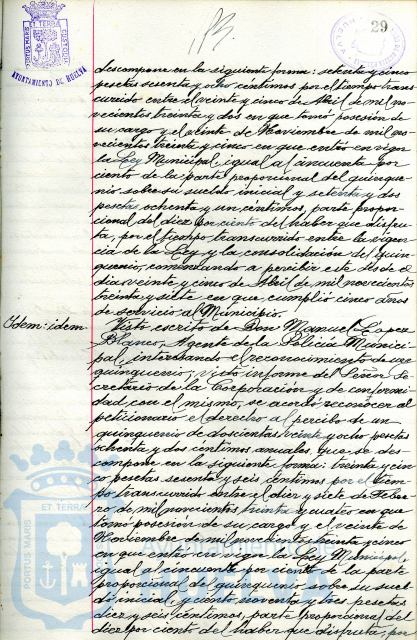 PORTUS MARIS ET TERRAE CUSTODIA
AYUNTAMIENTO DE HUELVA
29
descompone en la siguiente forma: setenta y cinco
pesetas sesenta y ocho céntimos por el tiempo trans-
currido entre el veinte y cinco de Abril de mil no-
vecientos treinta y dos en que tomó posesión de
su cargo y el veinte de Noviembre de mil no-
vecientos treinta y cinco en que entró en vigor
la Ley Municipal, igual al cincuenta por
ciento de la parte proporcional del quinque-
nio sobre su sueldo inicial y setenta y dos
pesetas ochenta y un céntimos, parte propor-
cional del diez por ciento del haber que disfru-
ta, por el tiempo transcurrido entre la vigen-
cia de la Ley y la consolidación del quin-
quenio, comenzando a percibir este desde el
día veinte y cinco de Abril de mil novecientos
treinta y siete en que cumplió cinco años
de servicio al Municipio.
Idem: idem
Visto escrito de Don Manuel Lopez
Blanco, Agente de la Policía Munici-
pal, interesando el reconocimiento de un
quinquenio; visto informe del Señor Se-
cretario de la Corporación y de conformi-
dad con el mismo, se acordó reconocer al
peticionario el derecho al percibo de un
quinquenio de doscientas veinte y ocho pesetas
ochenta y dos céntimos anuales que se des-
compone en la siguiente forma: treinta y cin-
co pesetas sesenta y seis céntimos por el tiem-
po transcurrido entre el diez y siete de Febre-
ro de mil novecientos treinta y cuatro en que
tomó posesión de su cargo y el veinte de
Noviembre de mil novecientos treinta y cinco
en que entró en vigor la Ley Municipal,
igual al cincuenta por ciento de la parte
proporcional del quinquenio sobre su suel-
do inicial y ciento noventa y tres pesetas
diez y seis céntimos, parte proporcional del
diez por ciento del haber que disfruta, p
PORTUS MARIS ET TERRAE
Ayuntamiento de
HUELVA